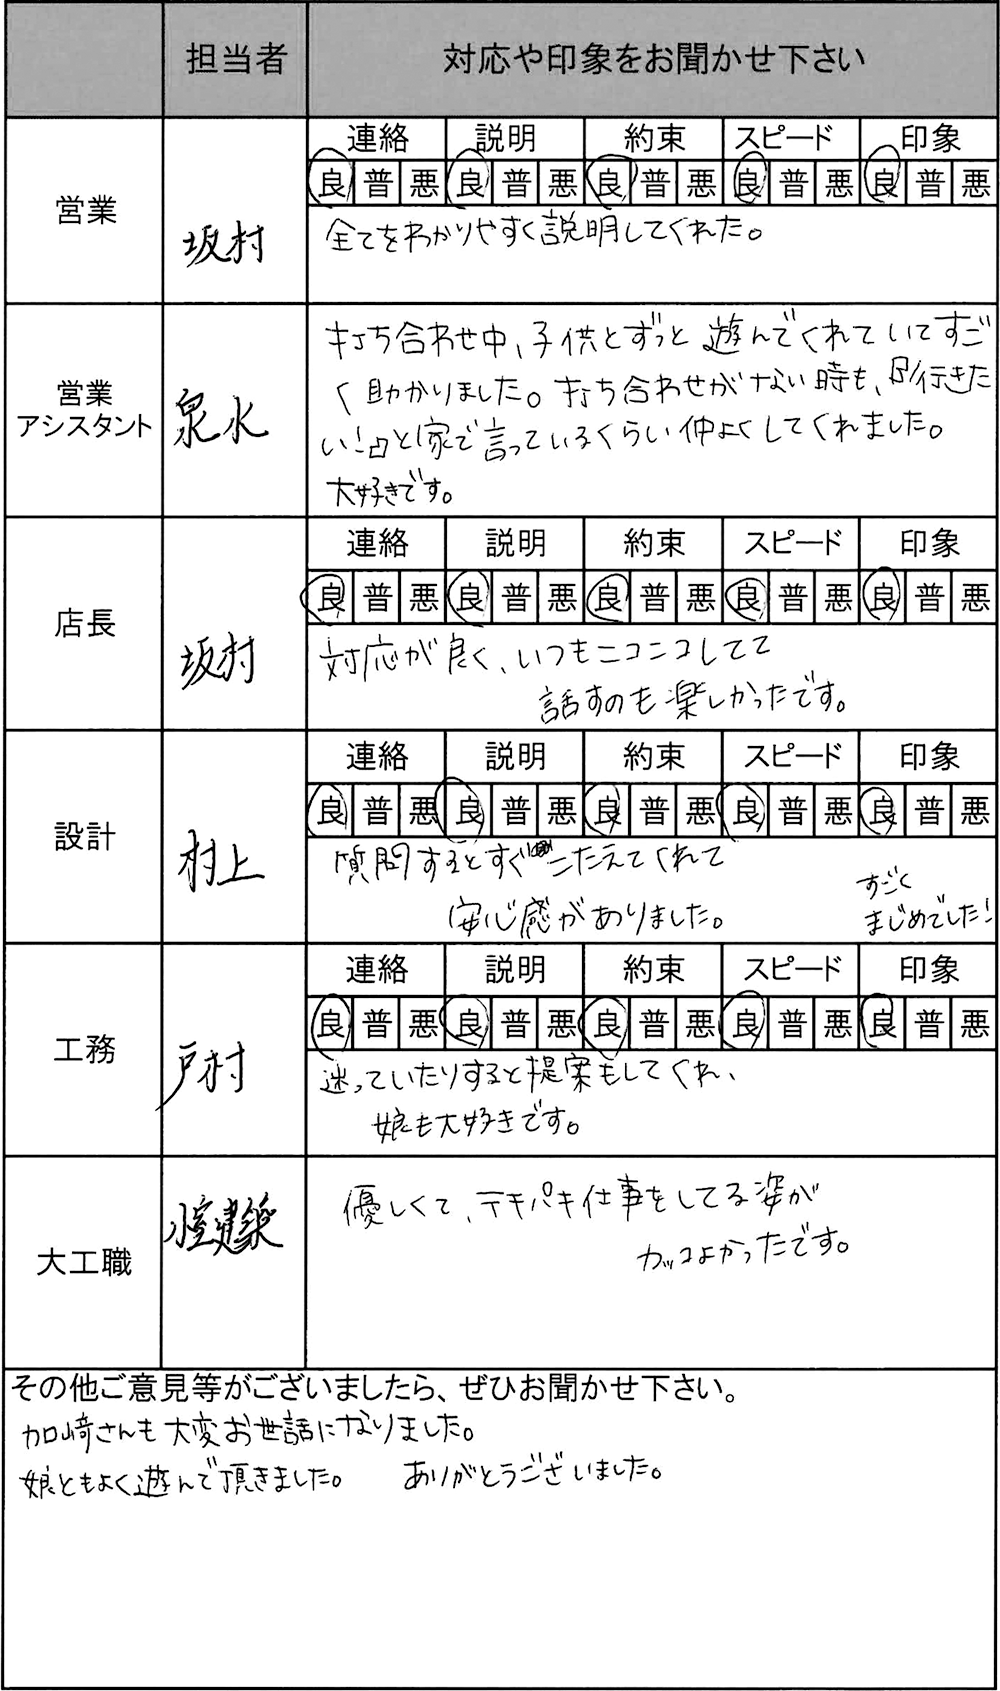 担当者 対応や印象をお聞かせ下さい
営業 坂村
連絡 説明 約束 スピード 印象
良 普 悪 良 普 悪 良 普 悪 良 普 悪 良 普 悪
全てをわかりやすく説明してくれた。
営業
アシスタント 泉水
打ち合わせ中、子供とずっと遊んでくれていてすご
く助かりました。打ち合わせがない時も、『行きた
い!』と家で言っているくらい仲よくしてくれました。
大好きです。
店長 坂村
連絡 説明 約束 スピード 印象
良 普 悪 良 普 悪 良 普 悪 良 普 悪 良 普 悪
対応が良く、いつもニコニコしてて
話すのも楽しかったです。
設計 村上
連絡 説明 約束 スピード 印象
良 普 悪 良 普 悪 良 普 悪 良 普 悪 良 普 悪
質問するとすぐこたえてくれて
安心感がありました。
すごく
まじめでした!
工務 戸村
連絡 説明 約束 スピード 印象
良 普 悪 良 普 悪 良 普 悪 良 普 悪 良 普 悪
迷っていたりすると提案もしてくれ、
娘も大好きです。
大工職 建築
優しくて、テキパキ仕事をしてる姿が
カッコよかったです。
その他ご意見等がございましたら、ぜひお聞かせ下さい。
加﨑さんも大変お世話になりました。
娘ともよく遊んで頂きました。 ありがとうございました。